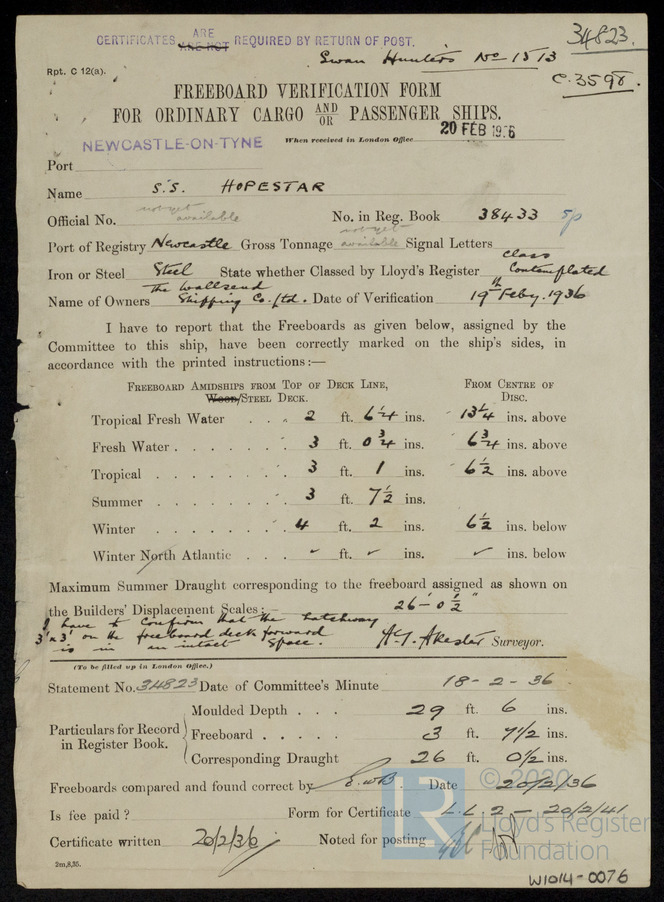 CERTIFICATES ARE NOT ARE REQUIRED BY RETURN OF POST.
34823.
Swan Hunters No 1513
Rpt. C 12(a).
C.3598.
FREEBOARD VERIFICATION FORM
FOR ORDINARY CARGO AND/OR PASSENGER SHIPS.
NEWCASTLE-ON-TYNE
When received in London Office 20 FEB 1936
Port
Name S.S. HOPESTAR
Official No. not yet available No. in Reg. Book 38433 sp
Port of Registry Newcastle Gross Tonnage not yet available Signal Letters
Iron or Steel Steel State whether Classed by Lloyd's Register class Contemplated
Name of Owners The Wallsend Shipping Co. Ltd. Date of Verification 19th Feby. 1936
I have to report that the Freeboards as given below, assigned by the
Committee to this ship, have been correctly marked on the ship's sides, in
accordance with the printed instructions:—
FREEBOARD AMIDSHIPS FROM TOP OF DECK LINE, WOOD/STEEL DECK.
FROM CENTRE OF DISC.
Tropical Fresh Water . . . 2 ft. 6 1/4 ins. 13 1/4 ins. above
Fresh Water . . . . . . . 3 ft. 0 3/4 ins. 6 3/4 ins. above
Tropical . . . . . . . 3 ft. 1 ins. 6 1/2 ins. above
Summer . . . . . . . 3 ft. 7 1/2 ins.
Winter . . . . . . . 4 ft. 2 ins. 6 1/2 ins. below
Winter North Atlantic . . . ✓ ft. ✓ ins. ✓ ins. below
Maximum Summer Draught corresponding to the freeboard assigned as shown on
the Builders' Displacement Scales:— 26'-0 1/2"
I have to confirm that the hatchway
3'x3' on the freeboard deck forward
is in an intact space.
A.J. Akester Surveyor.
(To be filled up in London Office.)
Statement No. 34823 Date of Committee's Minute 18-2-36
Particulars for Record in Register Book.
Moulded Depth . . . 29 ft. 6 ins.
Freeboard . . . . . 3 ft. 7 1/2 ins.
Corresponding Draught 26 ft. 0 1/2 ins.
Freeboards compared and found correct by E.W.B. Date 20/2/36
Is fee paid? Form for Certificate L.L.2 - 20/2/41
Certificate written 20/2/36 Noted for posting
2m,8,35.
© 2020
Lloyd's Register
Foundation
LR
W1014-0076